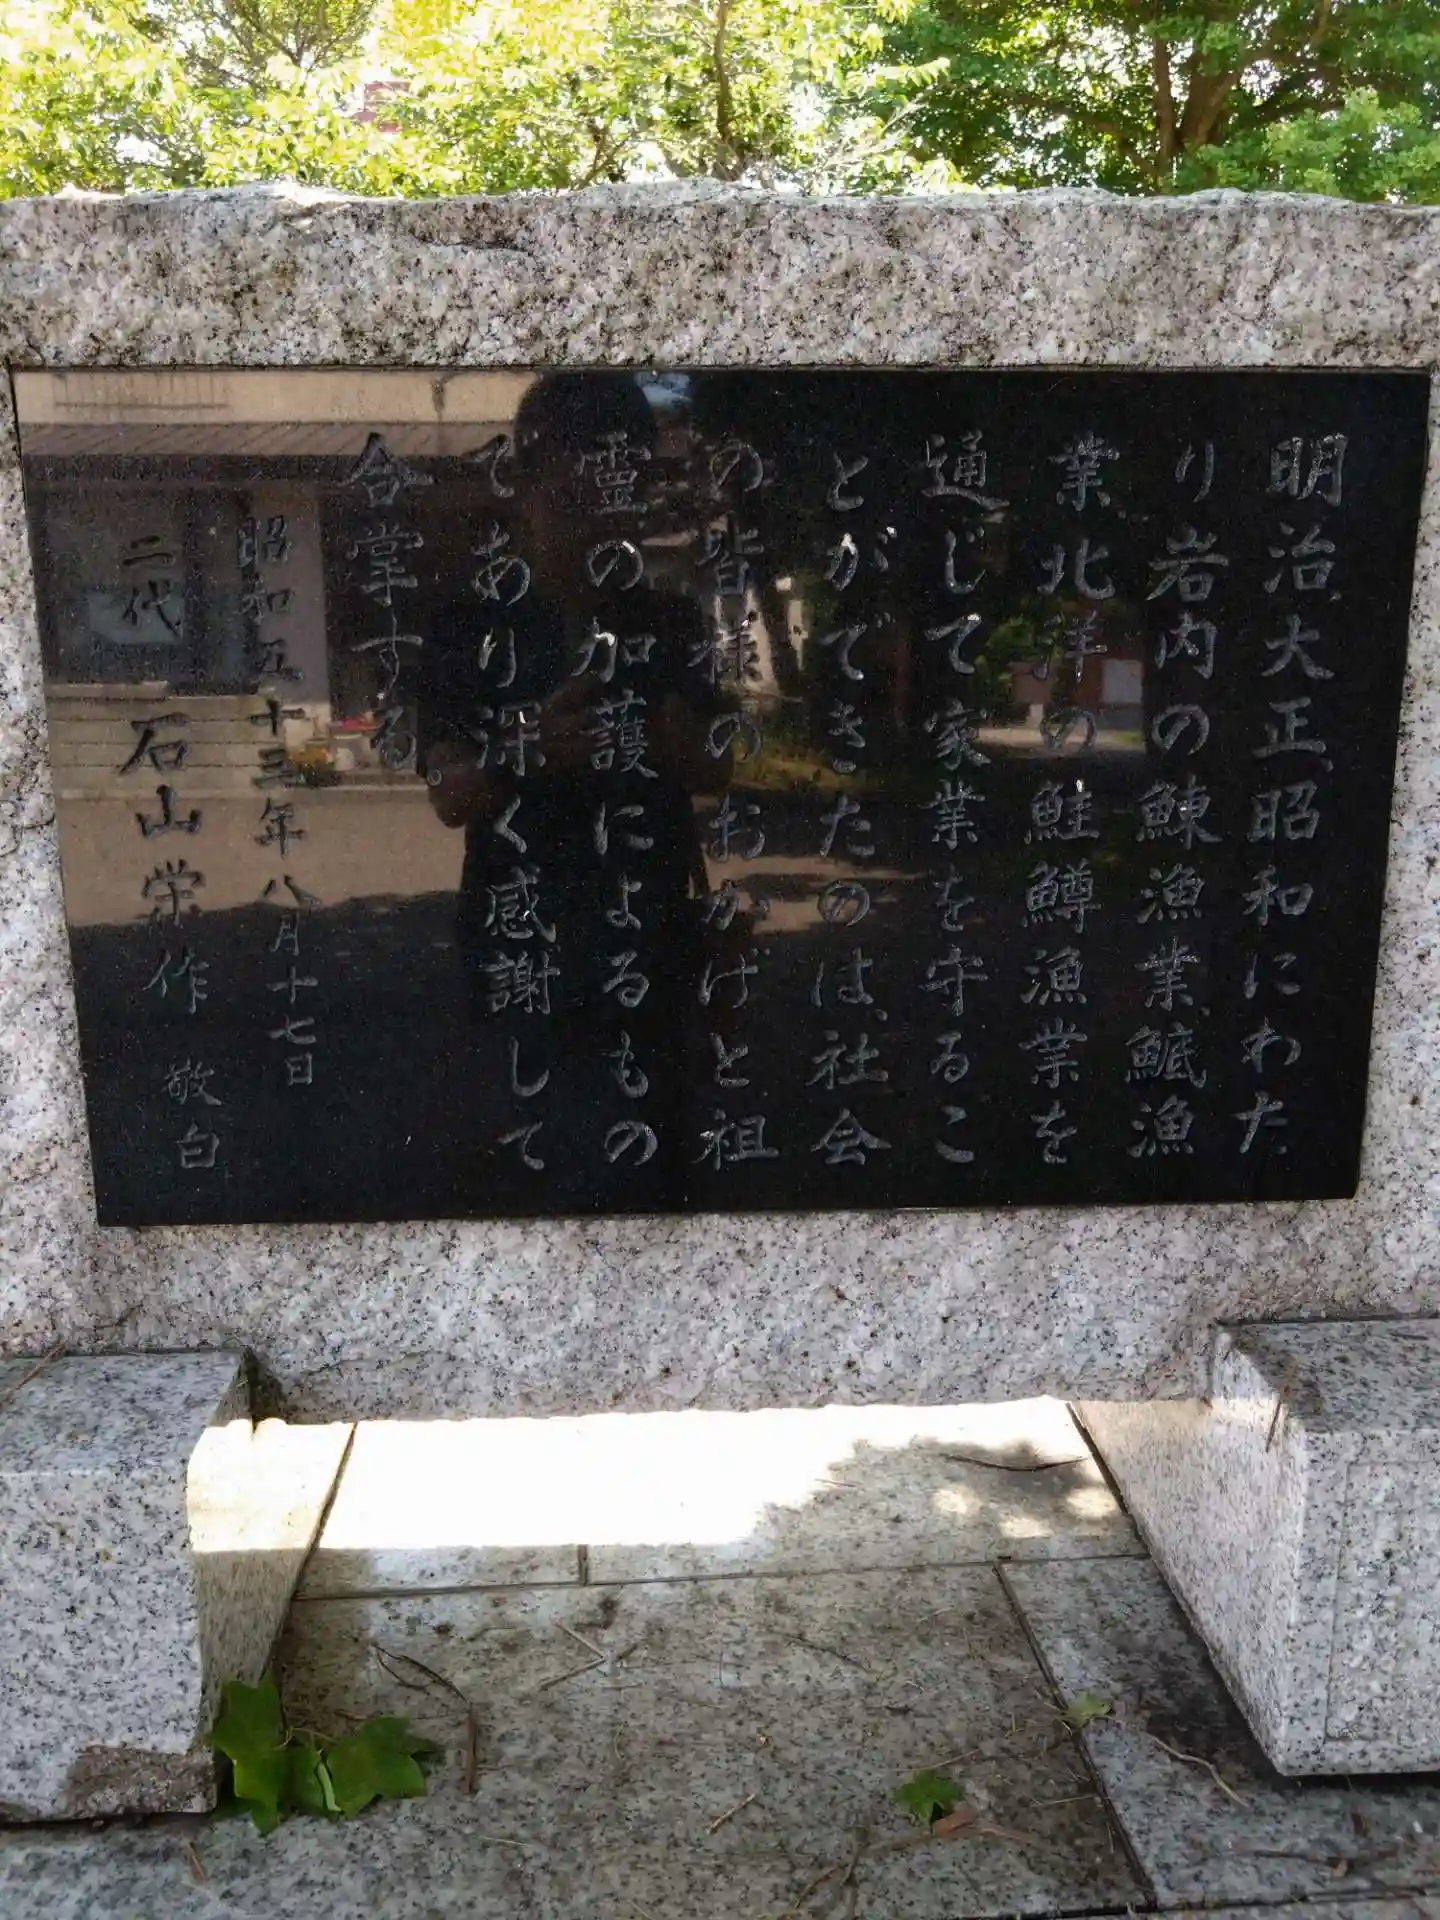 明治、大正、昭和にわた
り岩内の鰊漁業、鯳漁
業、北洋の鮭鱒漁業を
通じて家業を守るこ
とができたのは、社会
の皆様のおかげと祖
霊の加護によるもの
であり深く感謝して
合掌する。
昭和五十三年八月十七日
二代 石山栄作 敬白